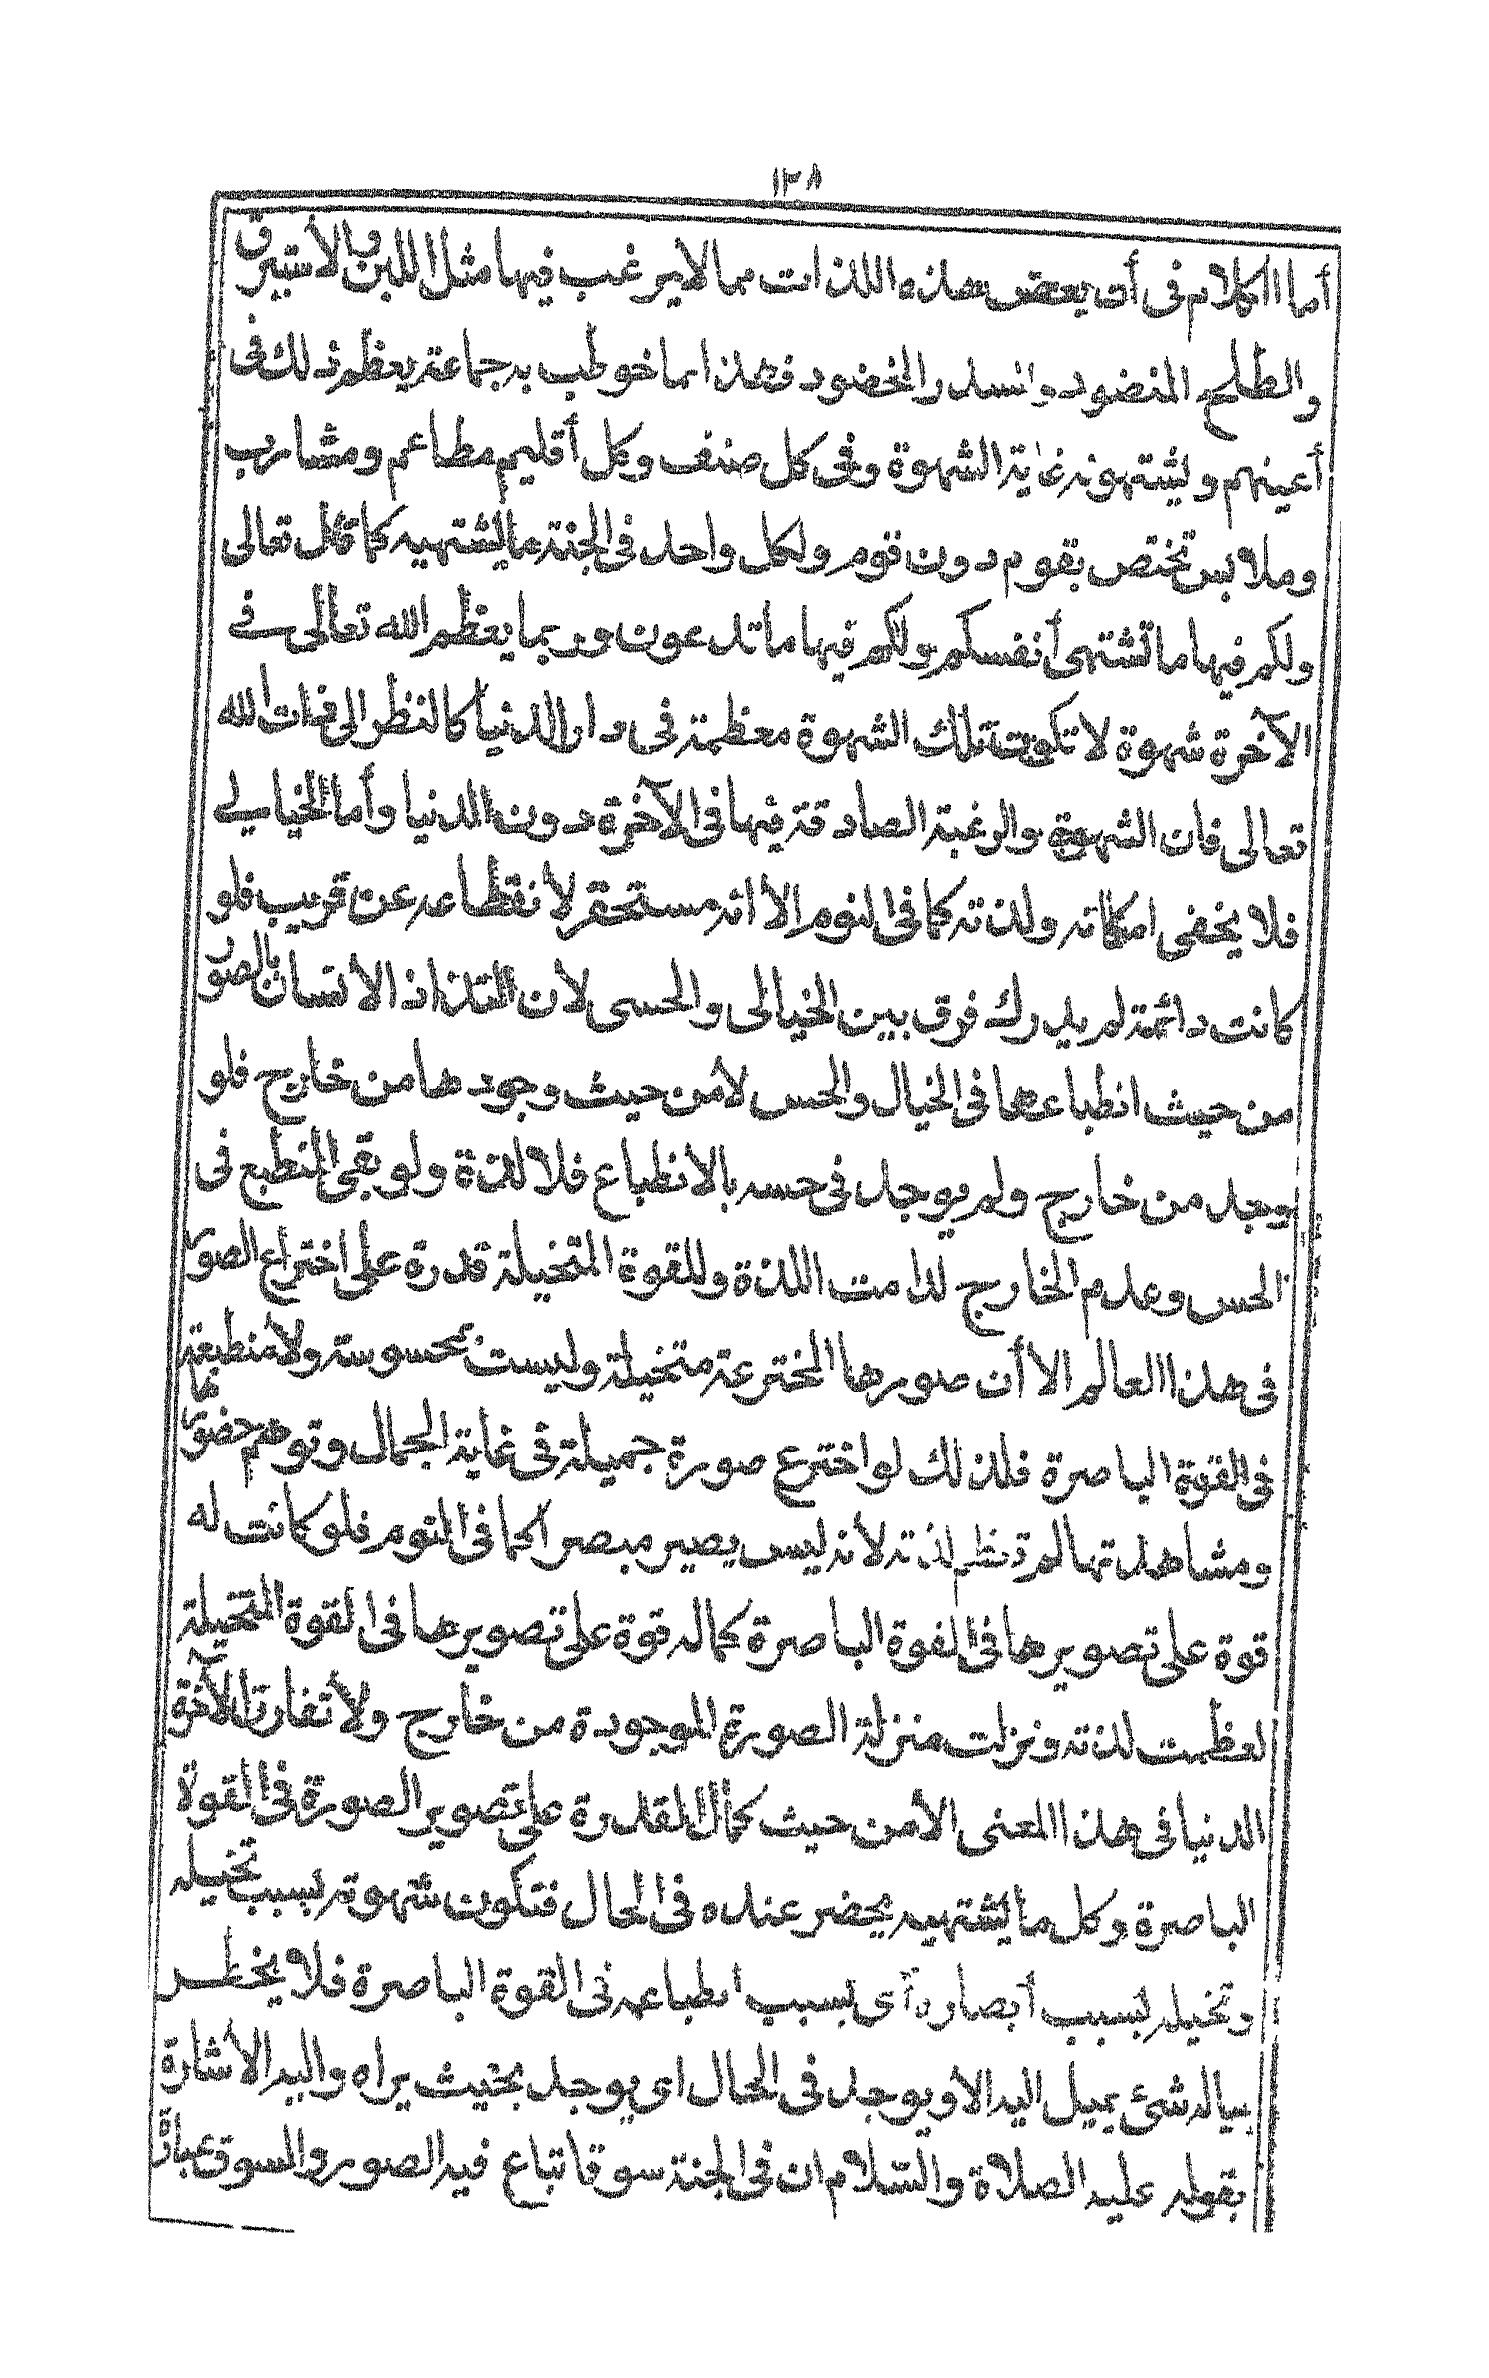 ١٢٨
أما الكلام فى أن بعض هذه اللذات مما لا يرغب فيها مثل اللبن والأستبرق
والطلح المنضود والسدر المخضود فهذا مما خوطب به جماعة يعظم ذلك فى
أعينهم ويشتهونه غاية الشهوة وفى كل صنف وكل أقليم مطاعم ومشارب
وملابس تختص بقوم دون قوم ولكل واحد فى الجنة ما يشتهيه كما قال تعالى
ولكم فيها ما تشتهى أنفسكم ولكم فيها ما تدعون وربما يعظم الله تعالى فى
الآخرة شهوة لا تكون تلك الشهوة معظمة فى دار الدنيا كالنظر الى ذات الله
تعالى فان الشهوة والرغبة الصادقة فيها فى الآخرة دون الدنيا وأما الخيالى
فلا يخفى امكانه ولذته كما فى النوم إلا أنه مستحقر لأنقطاعه عن قريب فلو
كانت دائمة لم يدرك فرق بين الخيالى والحسى لأن التذاذ الأنسان بالصور
من حيث انطباعها فى الخيال والحس لا من حيث وجودها من خارج فلو
وجد من خارج ولم يوجد فى حسه بالأنطباع فلا لذة ولو بقى المنطبع فى
الحس وعدم الخارج لدامت اللذة وللقوة المتخيلة قدرة على اختراع الصور
فى هذا العالم الا أن صورها المخترعة متخيلة وليست بمحسوسة ولا منطبعة
فى القوة الباصرة فلذلك لو اخترع صورة جميلة فى غاية الجمال وتوهم حضورها
ومشاهدتها لم تعظم لذته لأنه ليس يصير مبصرا كما فى النوم فلو كانت له
قوة على تصويرها فى القوة الباصرة كماله قوة على تصويرها فى القوة المتخيلة
لعظمت لذته ونزلت منزلة الصورة الموجودة من خارج ولا تفارق الآخرة
الدنيا فى هذا المعنى الا من حيث كمال القدرة على تصوير الصورة فى القوة
الباصرة وكل ما يشتهيه يحضر عنده فى الحال فتكون شهوته بسبب تخيله
وتخيله بسبب أبصاره أى بسبب انطباعه فى القوة الباصرة فلا يخطر
بباله شئ يميل اليه الا ويوجد فى الحال اى يوجد بحيث يراه واليه الأشارة
بقوله عليه الصلاة والسلام ان فى الجنة سوقا تباع فيه الصور والسوق عبارة